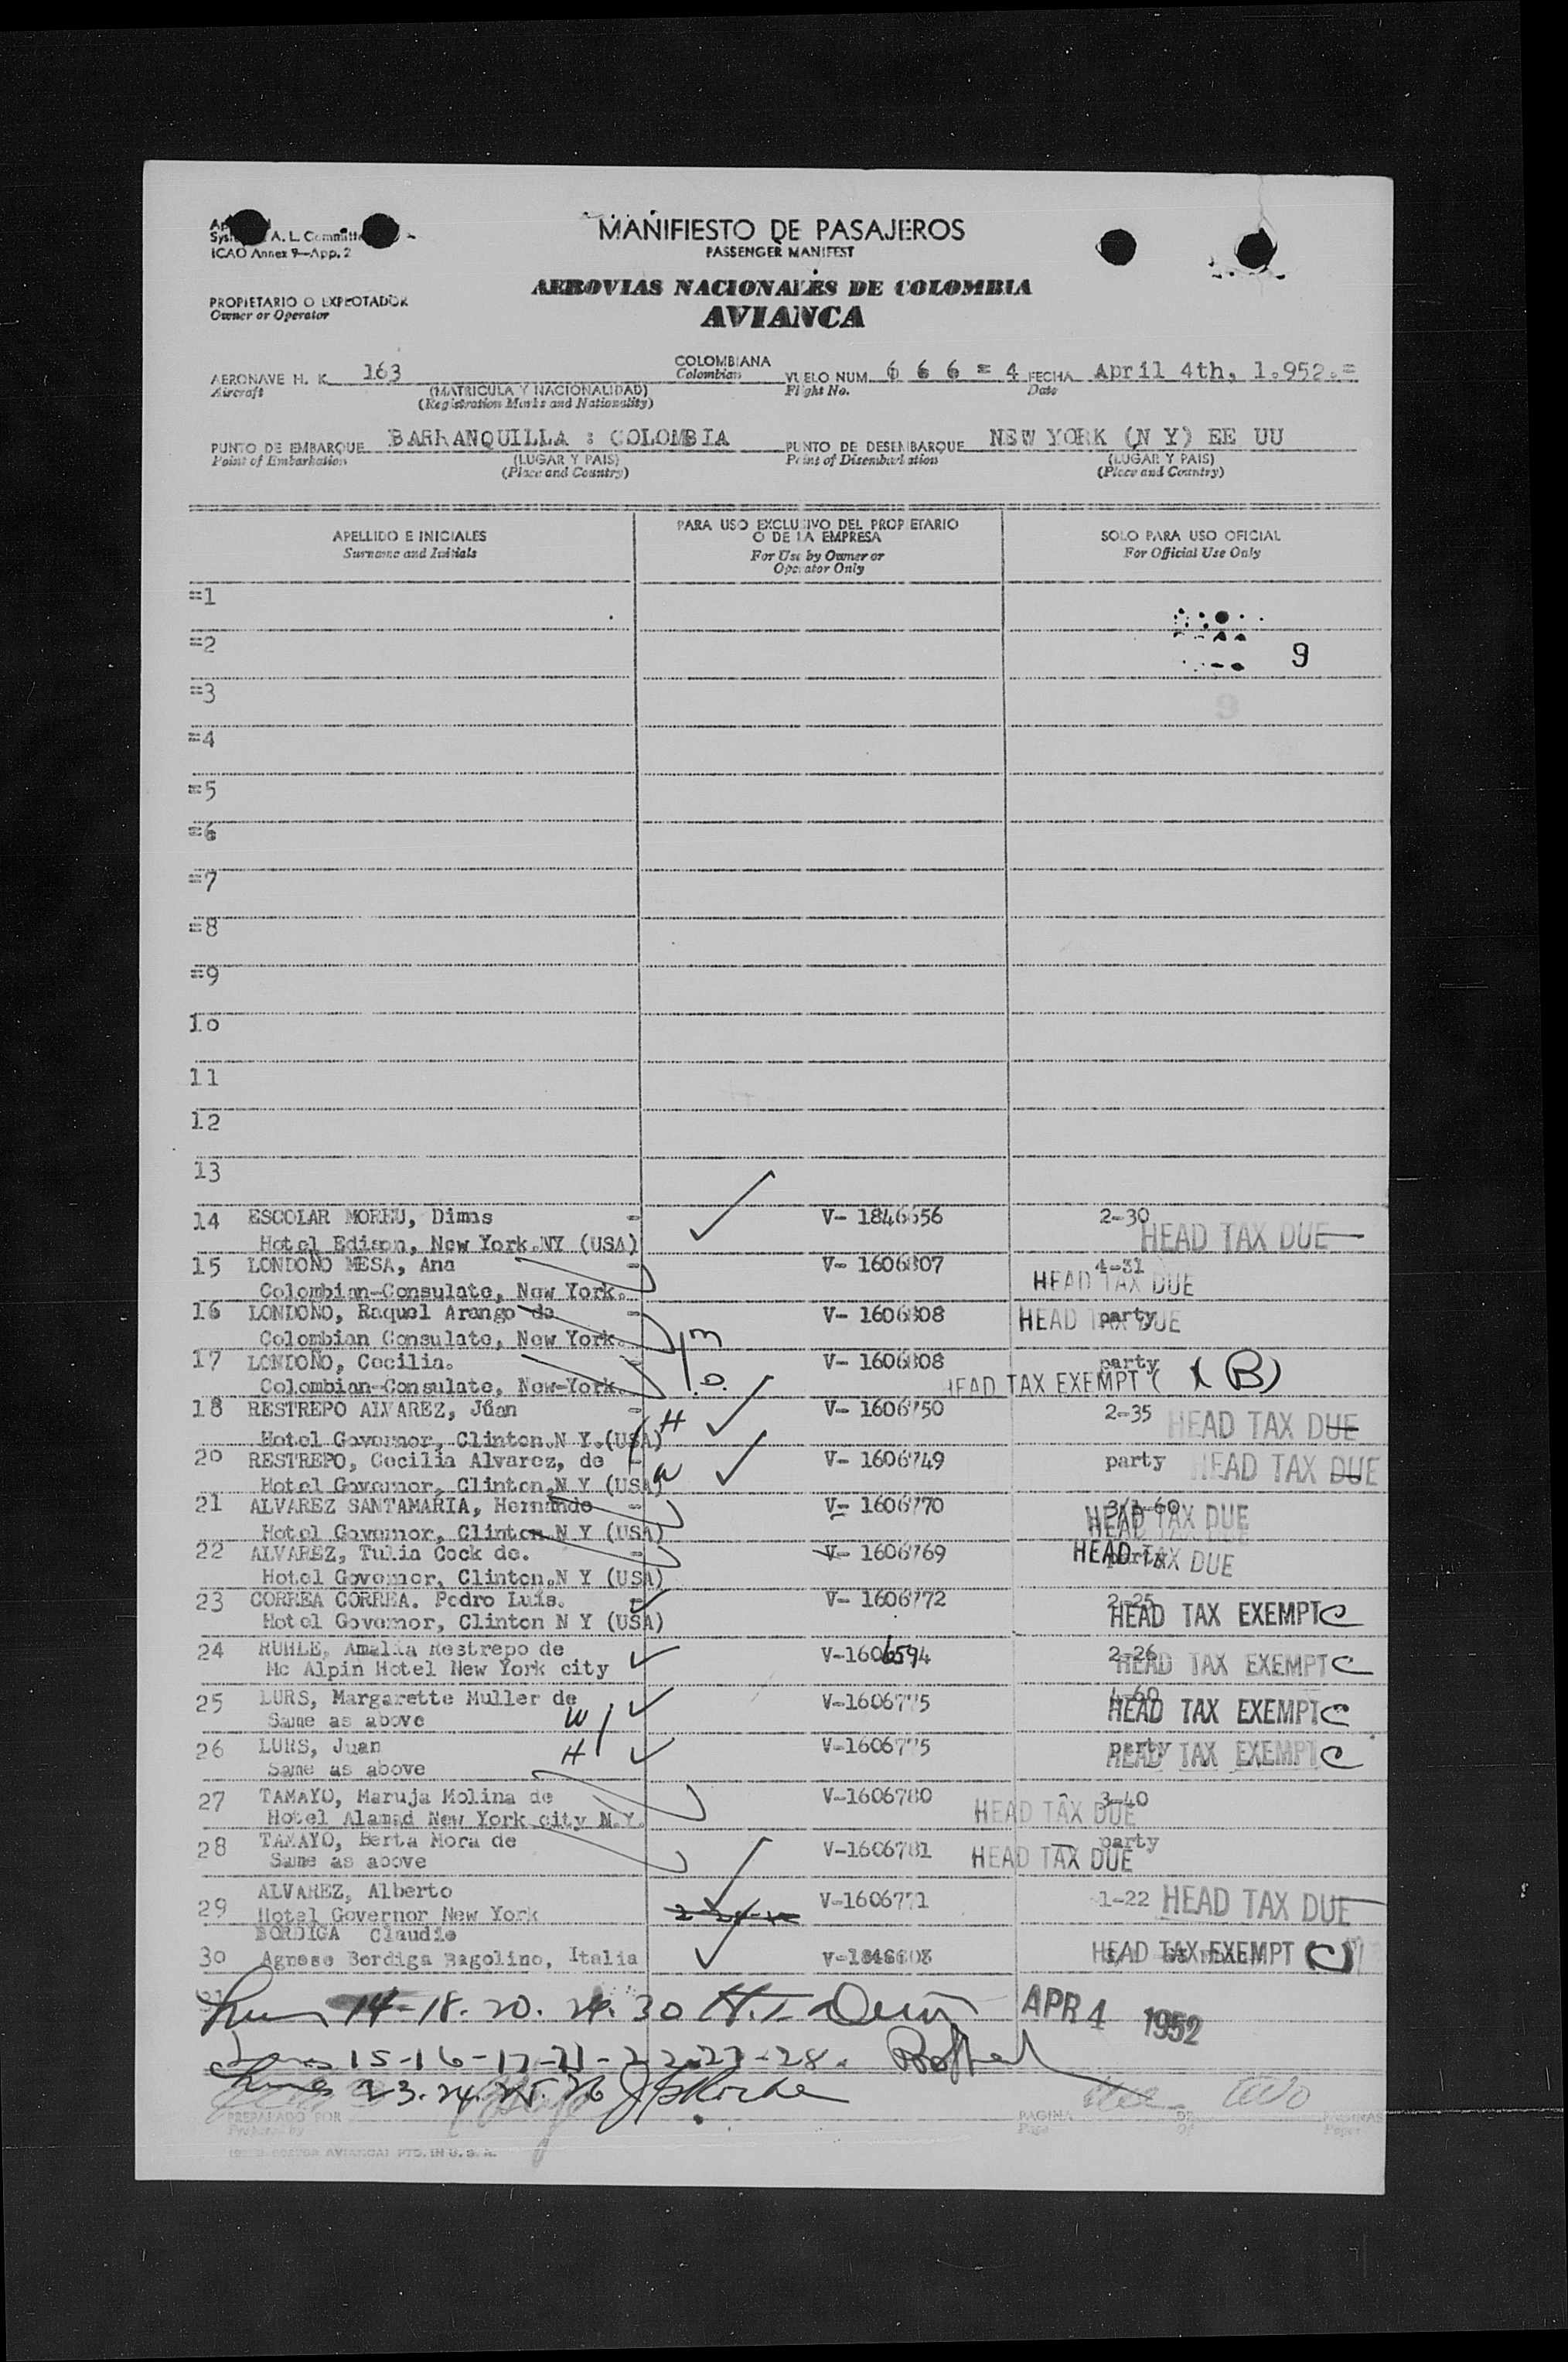 MANIFIESTO DE PASAJEROS
PASSENGER MANIFEST
A. L. Committe
ICAO Annex 9—App. 2
AEROVIAS NACIONALES DE COLOMBIA
AVIANCA
PROPIETARIO O EXPLOTADOR
Owner or Operator
AERONAVE H. K. 163 COLOMBIANA VUELO NUM. 6 6 6 = 4 FECHA April 4th, 1.952.=
Aircraft (MATRICULA Y NACIONALIDAD) Colombian Flight No. Date
(Registration Marks and Nationality)
PUNTO DE EMBARQUE BARRANQUILLA : COLOMBIA PUNTO DE DESEMBARQUE NEW YORK (N Y) EE UU
Point of Embarkation (LUGAR Y PAIS) Point of Disembarkation (LUGAR Y PAIS)
(Place and Country) (Place and Country)
APELLIDO E INICIALES PARA USO EXCLUSIVO DEL PROPIETARIO O DE LA EMPRESA SOLO PARA USO OFICIAL
Surname and Initials For Use by Owner or Operator Only For Official Use Only
=1
=2 9
=3
=4
=5
=6
=7
=8
=9
10
11
12
13
14 ESCOLAR MOREU, Dimas - V- 1846656 2-30 HEAD TAX DUE
Hotel Edison, New York.NY (USA)
15 LONDOÑO MESA, Ana - V- 1606807 4-31 HEAD TAX DUE
Colombian-Consulate, New York.
16 LONDOÑO, Raquel Arango de - V- 1606808 party HEAD TAX DUE
Colombian Consulate, New York.
17 LONDOÑO, Cecilia. - V- 1606808 party
Colombian-Consulate, New-York. HEAD TAX EXEMPT (B)
18 RESTREPO ALVAREZ, Júan - H V- 1606750 2-35 HEAD TAX DUE
Hotel Governor, Clinton.N Y.(USA)
20 RESTREPO, Cecilia Alvarez, de - W V- 1606749 party HEAD TAX DUE
Hotel Governor, Clinton,N Y (USA)
21 ALVAREZ SANTAMARIA, Hernando - V- 1606770 HEAD TAX DUE
Hotel Governor, Clinton N Y (USA)
22 ALVAREZ, Tulia Cock de. - V- 1606769 party HEAD TAX DUE
Hotel Governor, Clinton.N Y (USA)
23 CORREA CORREA. Pedro Luis. V- 1606772 2-25 HEAD TAX EXEMPT C
Hotel Governor, Clinton N Y (USA)
24 RUHLE, Amalia Restrepo de V-1606594 2-26 HEAD TAX EXEMPT C
Mc Alpin Hotel New York city
25 LURS, Margarette Muller de W V-1606775 4-60 HEAD TAX EXEMPT C
Same as above
26 LURS, Juan H V-1606775 party HEAD TAX EXEMPT C
Same as above
27 TAMAYO, Maruja Molina de V-1606780 3-40 HEAD TAX DUE
Hotel Alamad New York city N.Y.
28 TAMAYO, Berta Mora de V-1606781 party HEAD TAX DUE
Same as above
29 ALVAREZ, Alberto V-1606771 1-22 HEAD TAX DUE
Hotel Governor New York
BORDIGA Claudio
30 Agnese Bordiga Bagolino, Italia HEAD TAX EXEMPT C
14-18-20. 29. 30 APR 4 1952
15-16-17-21-22-27-28.
23. 24. 25. 26
PREPARADO POR PAGINA DE PAGINAS
Prepared by Page Of Pages
AVIANCA) PTD. IN U. S. A.